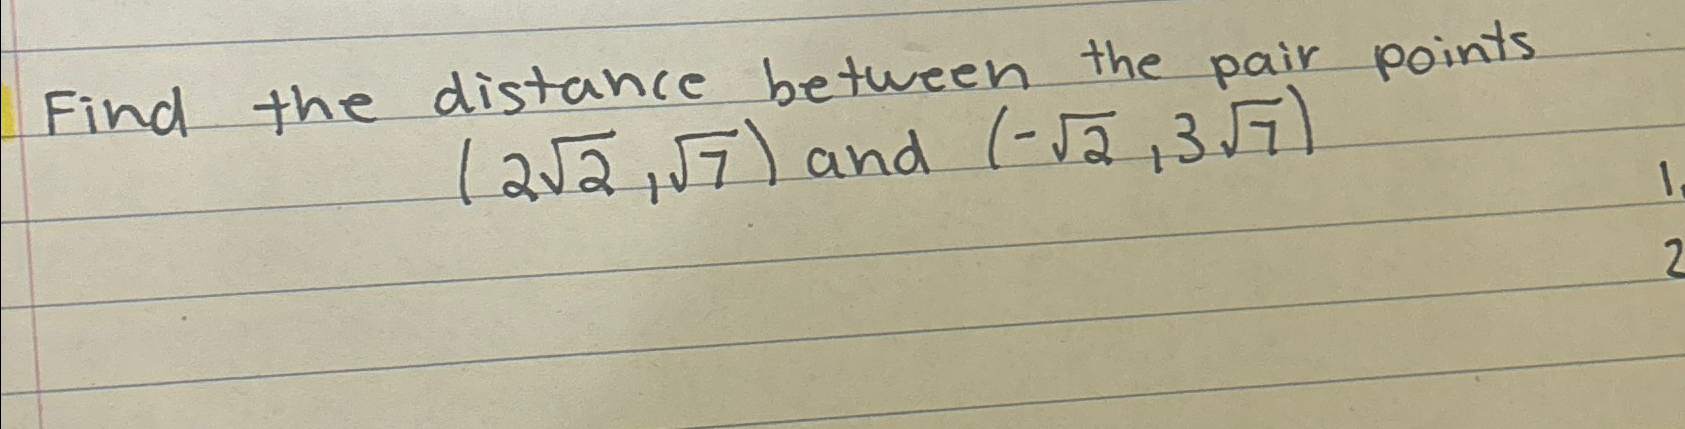 Find the distance between the pair points
(2√2, √7) and (-√2, 3√7)
1.
2